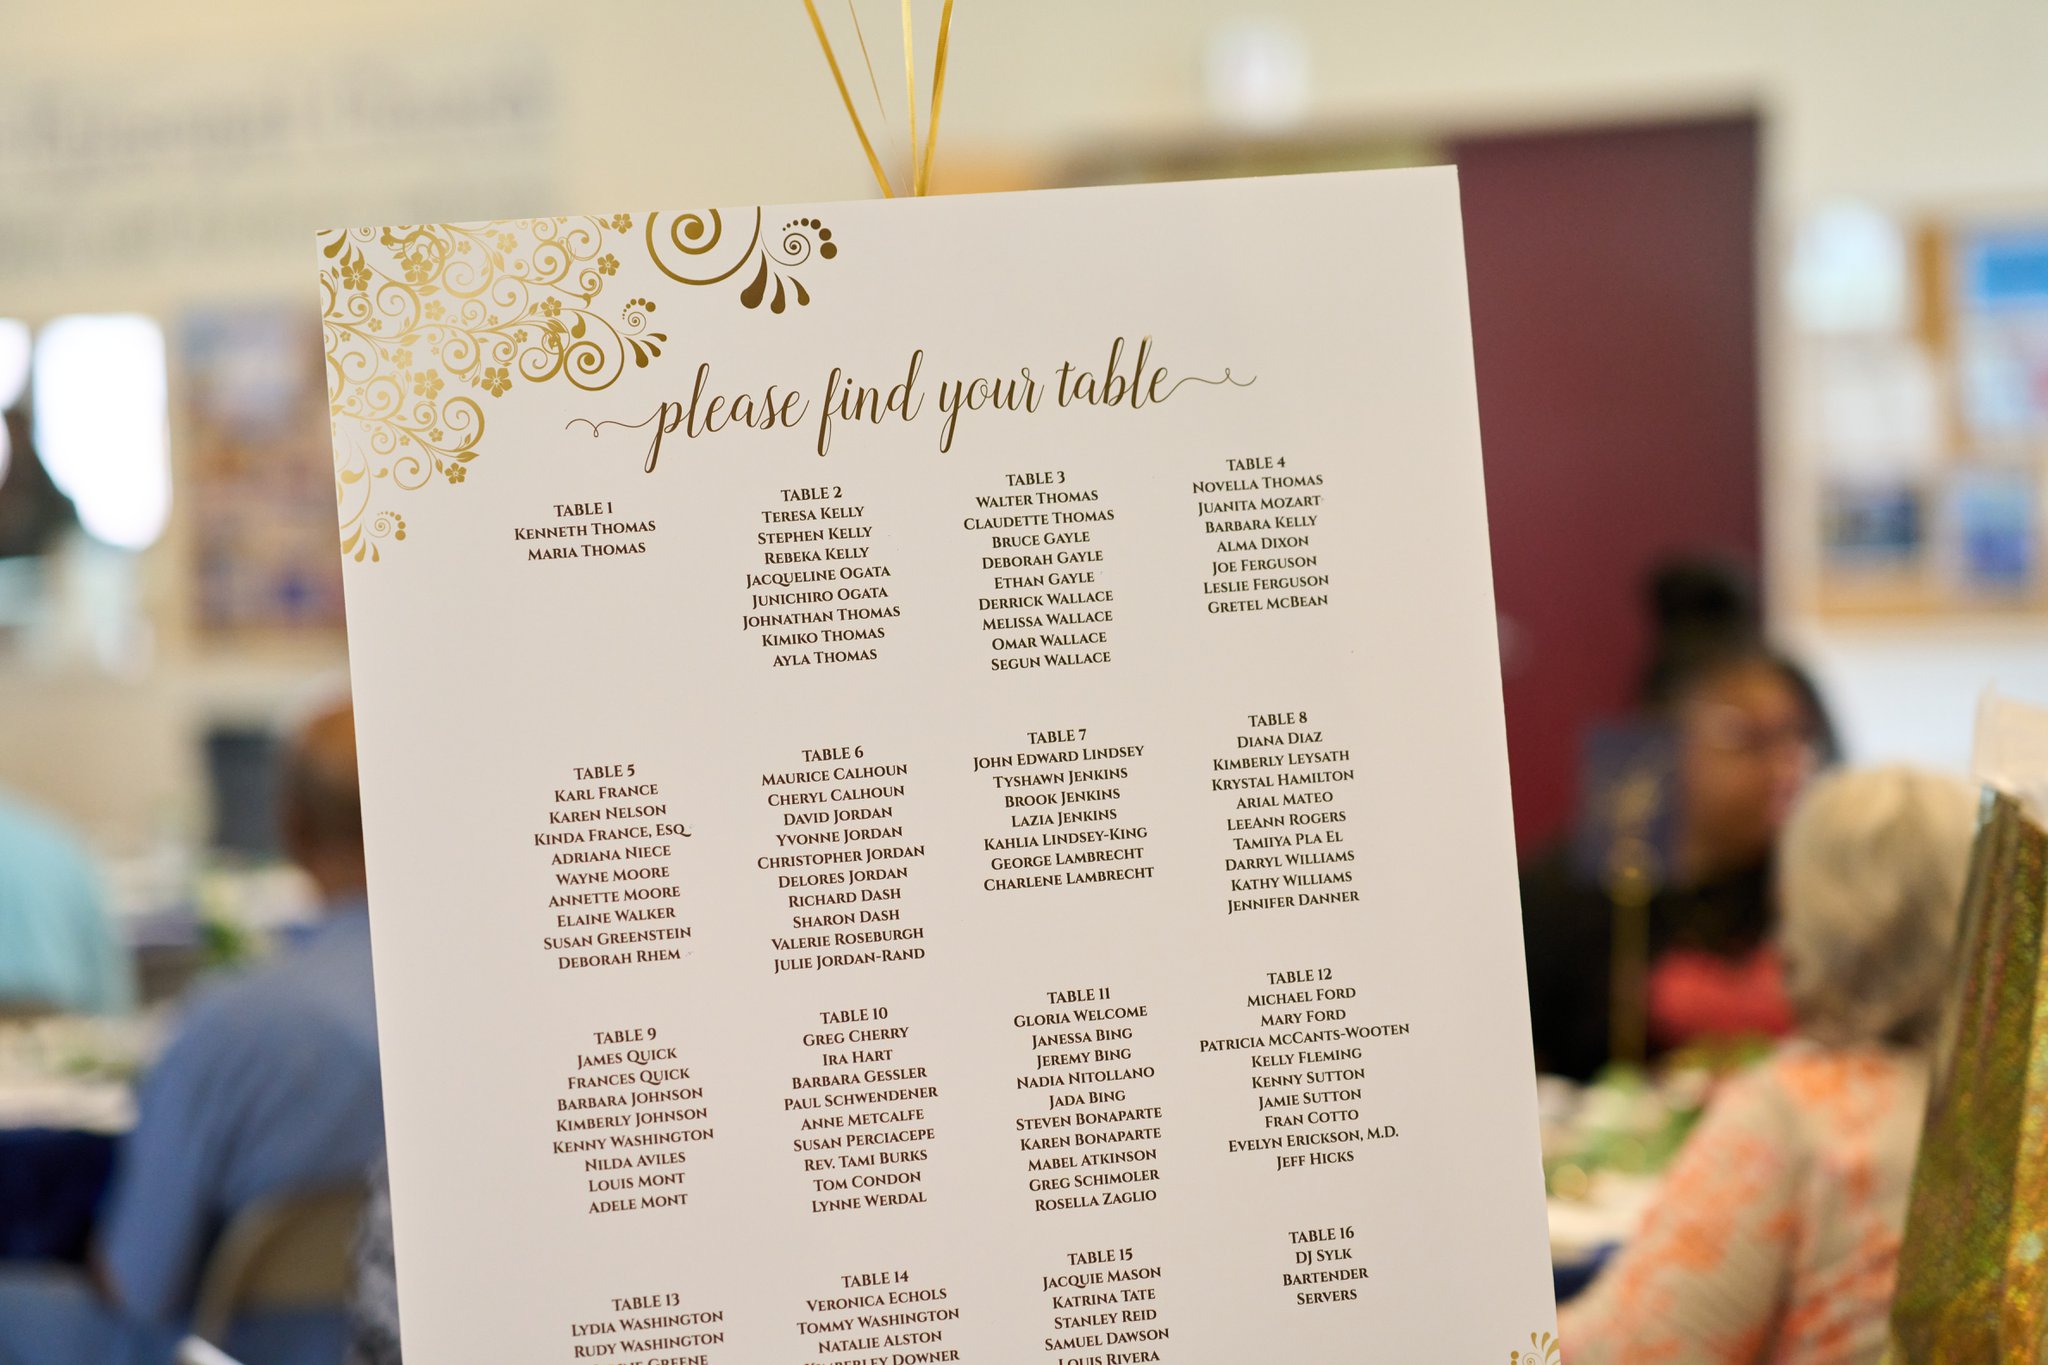 please find your table
TABLE 1
KENNETH THOMAS
MARIA THOMAS
TABLE 2
TERESA KELLY
STEPHEN KELLY
REBEKA KELLY
JACQUELINE OGATA
JUNICHIRO OGATA
JOHNATHAN THOMAS
KIMIKO THOMAS
AYLA THOMAS
TABLE 3
WALTER THOMAS
CLAUDETTE THOMAS
BRUCE GAYLE
DEBORAH GAYLE
ETHAN GAYLE
DERRICK WALLACE
MELISSA WALLACE
OMAR WALLACE
SEGUN WALLACE
TABLE 4
NOVELLA THOMAS
JUANITA MOZART
BARBARA KELLY
ALMA DIXON
JOE FERGUSON
LESLIE FERGUSON
GRETEL MCBEAN
TABLE 5
KARL FRANCE
KAREN NELSON
KINDA FRANCE, ESQ
ADRIANA NIECE
WAYNE MOORE
ANNETTE MOORE
ELAINE WALKER
SUSAN GREENSTEIN
DEBORAH RHEM
TABLE 6
MAURICE CALHOUN
CHERYL CALHOUN
DAVID JORDAN
YVONNE JORDAN
CHRISTOPHER JORDAN
DELORES JORDAN
RICHARD DASH
SHARON DASH
VALERIE ROSEBURGH
JULIE JORDAN-RAND
TABLE 7
JOHN EDWARD LINDSEY
TYSHAWN JENKINS
BROOK JENKINS
LAZIA JENKINS
KAHLIA LINDSEY-KING
GEORGE LAMBRECHT
CHARLENE LAMBRECHT
TABLE 8
DIANA DIAZ
KIMBERLY LEYSATH
KRYSTAL HAMILTON
ARIAL MATEO
LEEANN ROGERS
TAMIIYA PLA EL
DARRYL WILLIAMS
KATHY WILLIAMS
JENNIFER DANNER
TABLE 9
JAMES QUICK
FRANCES QUICK
BARBARA JOHNSON
KIMBERLY JOHNSON
KENNY WASHINGTON
NILDA AVILES
LOUIS MONT
ADELE MONT
TABLE 10
GREG CHERRY
IRA HART
BARBARA GESSLER
PAUL SCHWENDENER
ANNE METCALFE
SUSAN PERCIACEPE
REV. TAMI BURKS
TOM CONDON
LYNNE WERDAL
TABLE 11
GLORIA WELCOME
JANESSA BING
JEREMY BING
NADIA NITOLLANO
JADA BING
STEVEN BONAPARTE
KAREN BONAPARTE
MABEL ATKINSON
GREG SCHIMOLER
ROSELLA ZAGLIO
TABLE 12
MICHAEL FORD
MARY FORD
PATRICIA MCCANTS-WOOTEN
KELLY FLEMING
KENNY SUTTON
JAMIE SUTTON
FRAN COTTO
EVELYN ERICKSON, M.D.
JEFF HICKS
TABLE 13
LYDIA WASHINGTON
RUDY WASHINGTON
GREENE
TABLE 14
VERONICA ECHOLS
TOMMY WASHINGTON
NATALIE ALSTON
KIMBERLEY DOWNER
TABLE 15
JACQUIE MASON
KATRINA TATE
STANLEY REID
SAMUEL DAWSON
LOUIS RIVERA
TABLE 16
DJ SYLK
BARTENDER
SERVERS